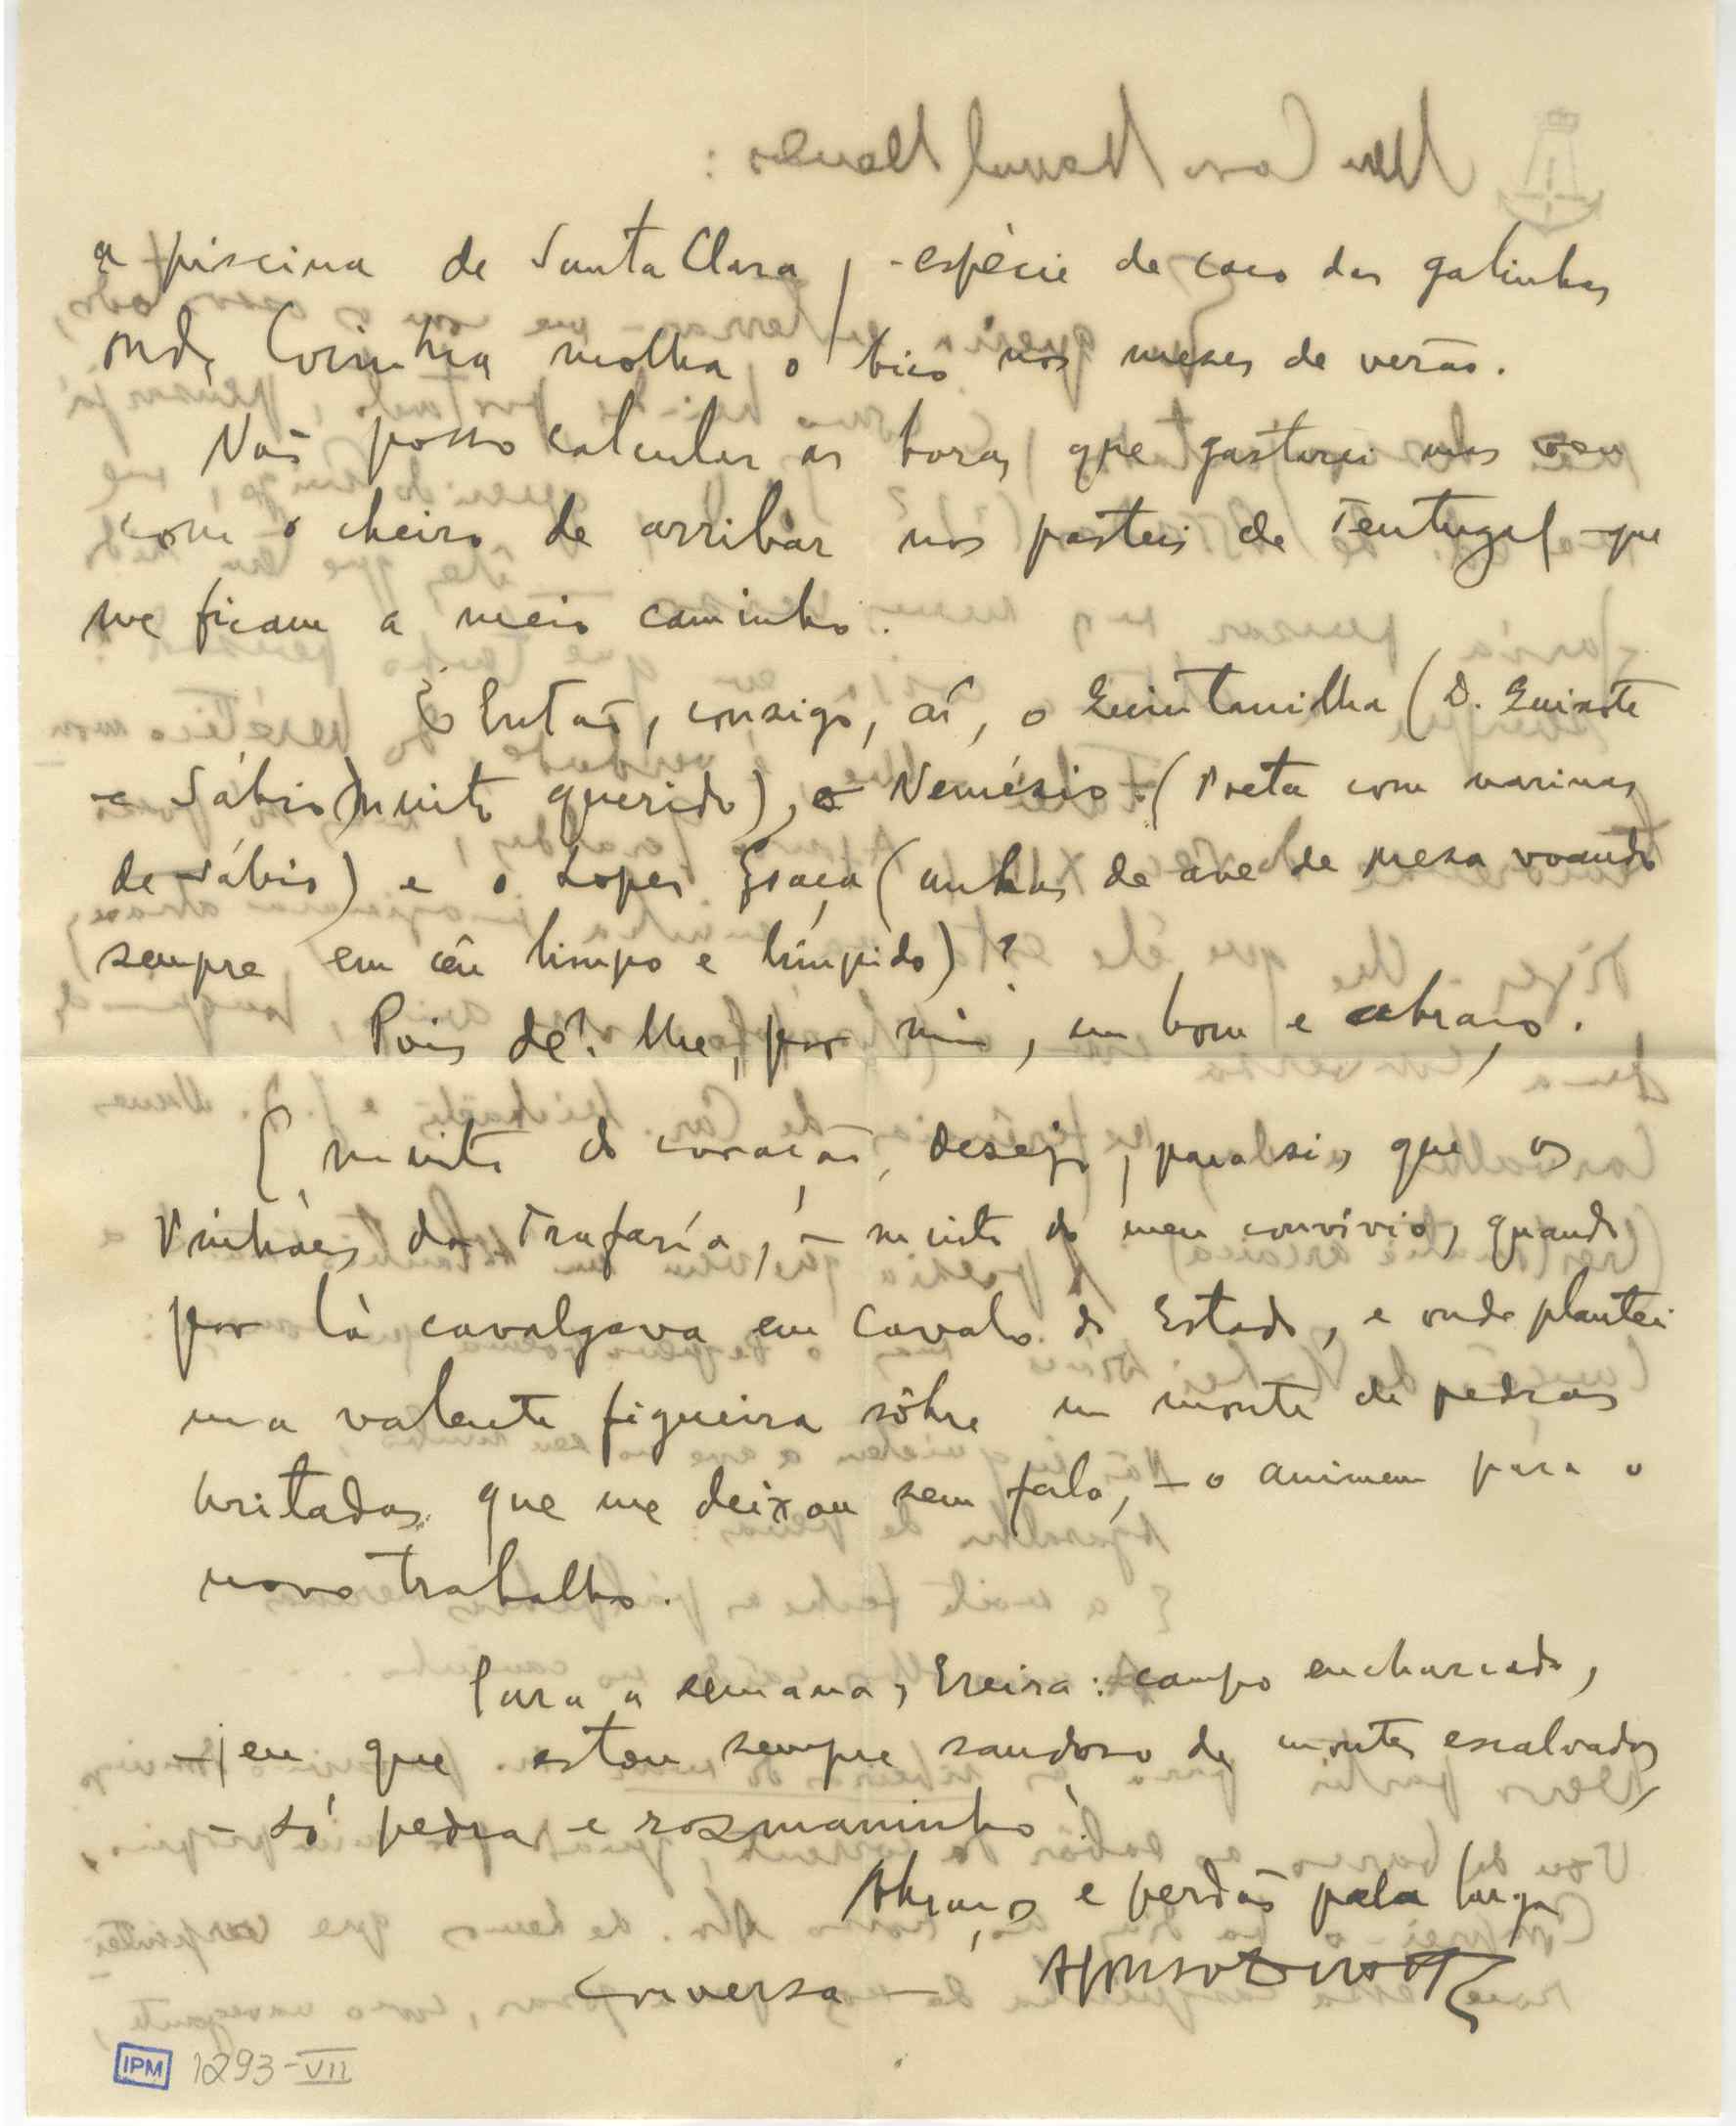 a piscina de Santa Clara, - espécie de caco das galinhas
onde Coimbra molha o bico nos meses de verão.
Não posso calcular as horas que gastarei mas vou
com o cheiro de arribar nos pasteis de Tentugal que
me ficam a meio caminho.
E Então, consigo, aí, o Quintanilha (D. Quixote
e Sábio muito querido), o Nemésio (Poeta com narinas
de Sábio) e o Lopes Graça (unhas de ave de presa voando
sempre em céu limpo e límpido)?
Pois dê-lhe, por mim, um bom e abraço.
E muito do coração, desejo, para si, que os
Pinhais da Trafaría, - muito do meu convívio, quando
por lá cavalgava em Cavalo do Estado, e onde plantei
uma valente figueira sôbre um monte de pedras
britadas que me deixou sem fala, - o animem para o
novo trabalho.
Para a semana, Ereira: campo encharcado,
- em que estou sempre saudoso de montes escalvados
- só pedra e rosmaninho.
Abraços e perdão pela larga
conversa —
Afonso Duarte
IPM 1293-VII